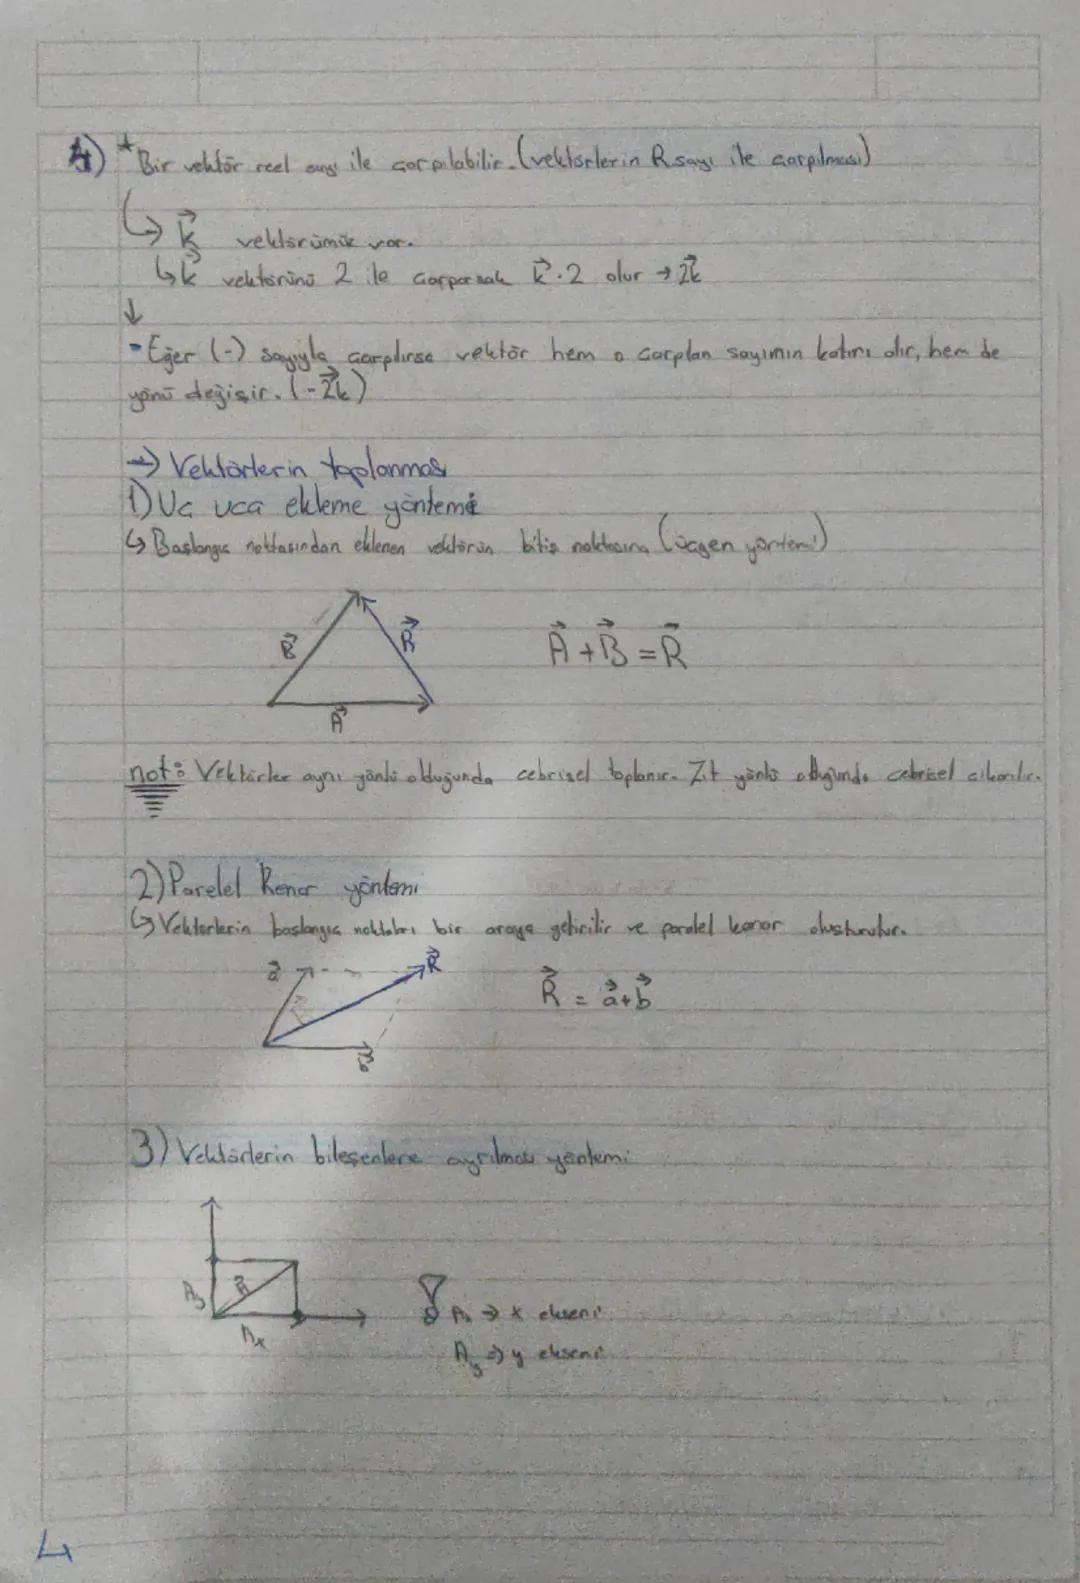 4) * Bir vektör reel sayı ile çarpılabilir. (vektörlerin R sayı ile çarpılması)
↳ k⃗ vektörümüz var.
↳ k⃗ vektörünü 2 ile çarparsak k⃗.2 olur → 2k⃗
↓
- Eğer (-) sayıyla çarpılırsa vektör hem o çarpılan sayının katını alır, hem de
yönü değişir. (-2k⃗)
→ Vektörlerin toplanması
1) Uç uca ekleme yöntemi
↳ Başlangıç noktasından eklenen vektörün bitiş noktasına (üçgen yöntemi)
B⃗ R⃗ A⃗ + B⃗ = R⃗
A⃗
not: Vektörler aynı yönlü olduğunda cebrisel toplanır. Zıt yönlü olduğunda cebrisel çıkarılır.
2) Parelel Kenar yöntemi
↳ Vektörlerin başlangıç noktaları bir araya getirilir ve paralel kenar oluşturulur.
a⃗ R⃗ R⃗ = a⃗ + b⃗
b⃗
3) Vektörlerin bileşenlere ayrılması yöntemi
Ay A⃗ Ax → x ekseni
Ax Ay ⇒ y ekseni
4